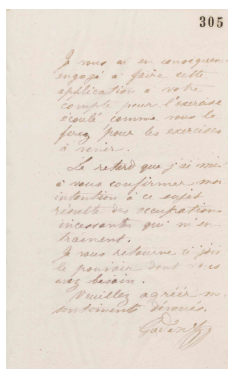 305
Je vous ai en conséquence
engagé à faire cette
application à votre
compte pour l'exercice
écoulé comme vous le
ferez pour les exercices
à venir.
Le retard que j'ai mis
à vous confirmer mon
intention à ce sujet
résulte des occupations
incessantes qui m'en
Je vous retourne ci joint
le pouvoir dont vous
avez besoin.
Veuillez agréer mes
sentiments dévoués.